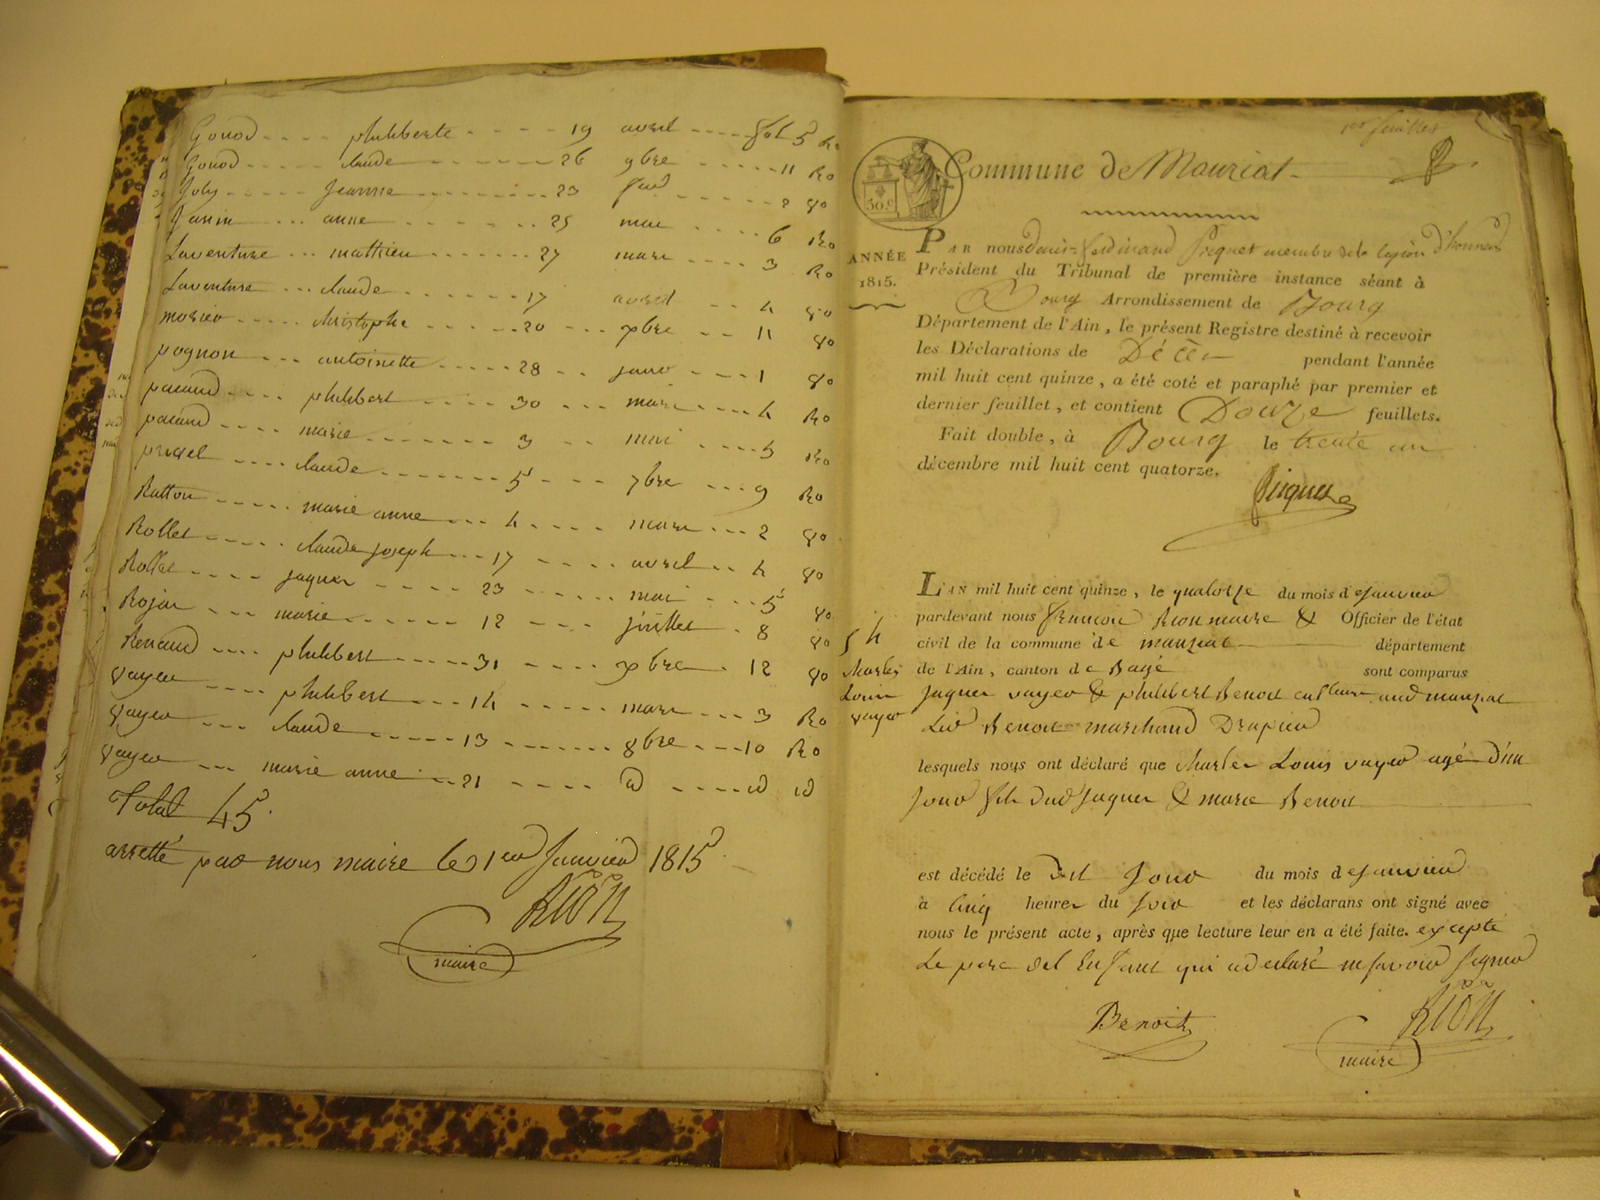 Gonod philiberte 19 avril fol 5 Ro
Gonod claude 26 9bre 11 Ro
Joly Jeanne 23 2 vo
Janin anne 25 mai 6 Ro
Laventure mathieu 27 mars 3 Ro
Laventure claude 17 avril 4 vo
christophe 20 xbre 11 vo
pognon antoinette 28 janv 1 vo
pacaud philibert 30 mars 4 Ro
pacaud marie 3 mai 5 Ro
claude 5 7bre 9 Ro
Ratton marie anne 4 mars 2 vo
Rollet claude joseph 17 avril 4 vo
Rollet jaques 23 mai 5 vo
Rojat marie 12 juillet 8 vo
Renaud philibert 31 xbre 12 vo
Vayer philibert 14 mars 3 Ro
Vayer claude 13 8bre 10 Ro
Vayer marie anne 21 id id
Total 45
arretté par nous maire le 1er Janvier 1815
Rion
maire
1er feuillet
Commune de Manziat
30.c
ANNÉE
1815.
PAR nous denis ferdinand Piquet membre de la legion d'honneur
Président du Tribunal de première instance séant à
Bourg Arrondissement de Bourg
Département de l'Ain, le présent Registre destiné à recevoir
les Déclarations de Décès pendant l'année
mil huit cent quinze, a été coté et paraphé par premier et
dernier feuillet, et contient Douze feuillets.
Fait double, à Bourg le trente un
décembre mil huit cent quatorze.
Piquet
L'AN mil huit cent quinze, le quatorze du mois de janvier
pardevant nous françois Rion maire & Officier de l'état
civil de la commune de manziat département
de l'Ain, canton de Bagé sont comparus
Charles
Louis
vayer
Jaques vayer & philibert Benoit cultivateur aud manziat
Led Benoit marchand Drapier
lesquels nous ont déclaré que Charles Louis vayer agé d'un
jour fils dud Jaques & marie Benoit
est décédé le dit jour du mois de janvier
à cinq heures du soir et les déclarans ont signé avec
nous le présent acte, après que lecture leur en a été faite. excepté
Le pere del Enfant qui a declaré ne savoir signer
Benoit
Rion
maire